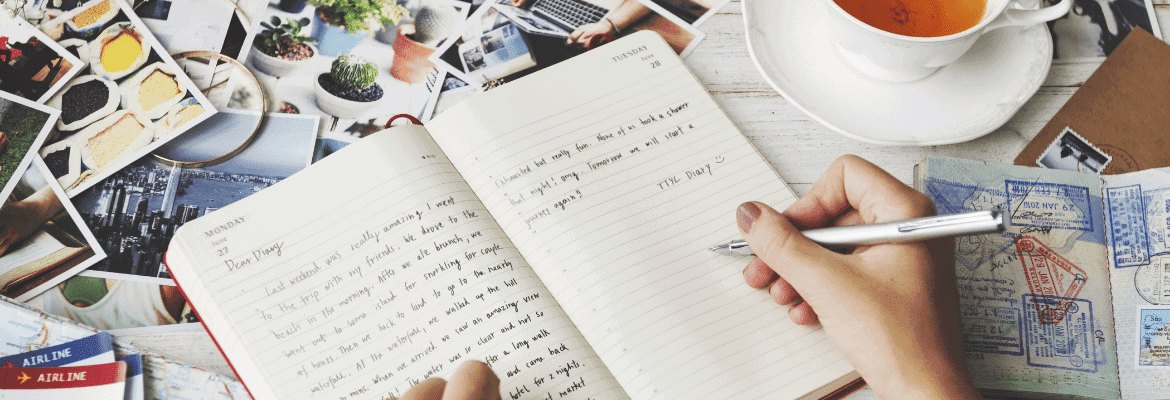 MONDAY
June
27
Dear Diary
Last weekend was really amazing I went
to the trip with my friends. We drove to the
beach in the morning. After we ate brunch, we
went out to some island for snorkling for couple
of hours. Then we back to land to go to the nearby
waterfall. At the waterfall, we walked up the hill
mins when we arrived we saw an amazing view
The water was clear and not so
after a long walk
and came back
hotel for 2 nights.
market
TUESDAY
June
28
Exhausted but really fun. None of us took a shower
that night! omg Tomorrow we will start a
journey again!!
TTYL Diary
AIRLINE
AIRLINE
29 JAN 2010